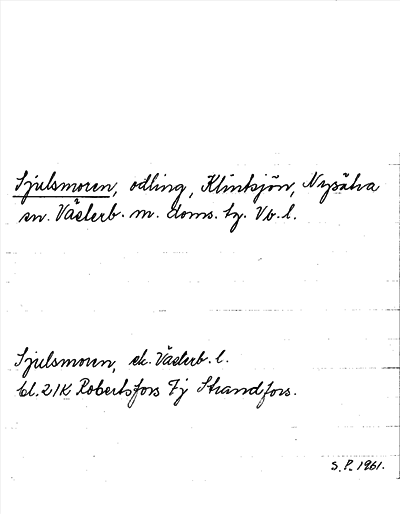 Sjulsmoren, odling, Klintsjön, Nysätra
sn. Västerb. m. doms. tg. Vb. l.
Sjulsmoren, ek. Västerb. l.
bl. 21K Robertsfors 7j Strandfors.
S.P. 1961.